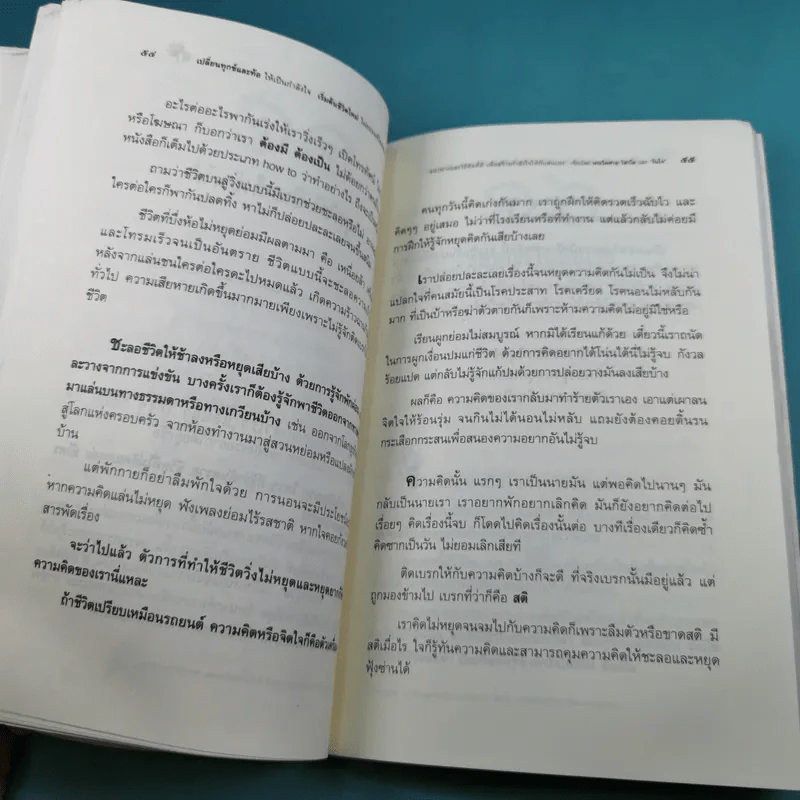 ๕๔ เปลี่ยนทุกข์และท้อ ให้เป็นกำลังใจ เริ่มต้นชีวิตใหม่
อะไรต่ออะไรพากันเร่งให้เราวิ่งเร็วๆ เปิดโทรทัศน์
หรือโฆษณา ก็บอกว่าเรา ต้องมี ต้องเป็น ไม่ด้อยกว่า
หนังสือก็เต็มไปด้วยประเภท how to ว่าทำอย่างไร ถึงจะเป็น
ถามว่าชีวิตบนลู่วิ่งแบบนี้มีเบรกช่วยชะลอหรือไม่
ใครต่อใครก็พากันปลดทิ้ง หาไม่ก็ปล่อยปละละเลยจนขึ้นสนิม
ชีวิตที่บึ่งห้อไม่หยุดย่อมมีผลตามมา คือ เหนื่อยล้า
และโทรมเร็วจนเป็นอันตราย ชีวิตแบบนี้จะชะลอความเร็ว
หลังจากแล่นชนใครต่อใครดะไปหมดแล้ว เกิดความร้าวฉาน
ทั่วไป ความเสียหายเกิดขึ้นมากมายเพียงเพราะไม่รู้จัก
ชีวิต
ชะลอชีวิตให้ช้าลงหรือหยุดเสียบ้าง ด้วยการรู้จักพักผ่อน
ละวางจากการแข่งขัน บางครั้งเราก็ต้องรู้จักพาชีวิตออกจาก
มาแล่นบนทางธรรมดาหรือทางเกวียนบ้าง เช่น ออกจากโลก
สู่โลกแห่งครอบครัว จากห้องทำงานมาสู่สวนหย่อมหรือแปลง
บ้าน
แต่พักกายก็อย่าลืมพักใจด้วย การนอนจะมีประโยชน์
หากความคิดแล่นไม่หยุด ฟังเพลงย่อมไร้รสชาติ หากใจคอย
สารพัดเรื่อง
จะว่าไปแล้ว ตัวการที่ทำให้ชีวิตวิ่งไม่หยุดและหยุดยาก
ความคิดของเรานี่แหละ
ถ้าชีวิตเปรียบเหมือนรถยนต์ ความคิดหรือจิตใจก็คือตัว
๕๕
คนทุกวันนี้คิดเก่งกันมาก เราถูกฝึกให้คิดรวดเร็วฉับไว และ
คิดๆๆ อยู่เสมอ ไม่ว่าที่โรงเรียนหรือที่ทำงาน แต่แล้วกลับไม่ค่อยมี
การฝึกให้รู้จักหยุดคิดกันเสียบ้างเลย
เราปล่อยปละละเลยเรื่องนี้จนหยุดความคิดกันไม่เป็น จึงไม่น่า
แปลกใจที่คนสมัยนี้เป็นโรคประสาท โรคเครียด โรคนอนไม่หลับกัน
มาก ที่เป็นบ้าหรือฆ่าตัวตายกันก็เพราะห้ามความคิดไม่อยู่มิใช่หรือ
เรียนผูกย่อมไม่สมบูรณ์ หากมิได้เรียนแก้ด้วย เดี๋ยวนี้เราถนัด
ในการผูกเงื่อนปมแก่ชีวิต ด้วยการคิดอยากได้โน่นได้นี่ไม่รู้จบ กังวล
ร้อยแปด แต่กลับไม่รู้จักแก้ปมด้วยการปล่อยวางมันลงเสียบ้าง
ผลก็คือ ความคิดของเรากลับมาทำร้ายตัวเราเอง เอาแต่เผาลน
จิตใจให้ร้อนรุ่ม จนกินไม่ได้นอนไม่หลับ แถมยังต้องคอยดิ้นรน
กระเสือกกระสนเพื่อสนองความอยากอันไม่รู้จบ
ความคิดนั้น แรกๆ เราเป็นนายมัน แต่พอคิดไปนานๆ มัน
กลับเป็นนายเรา เราอยากพักอยากเลิกคิด มันก็ยังอยากคิดต่อไป
เรื่อยๆ คิดเรื่องนี้จบ ก็โดดไปคิดเรื่องนั้นต่อ บางทีเรื่องเดียวก็คิดซ้ำ
คิดซากเป็นวัน ไม่ยอมเลิกเสียที
ติดเบรกให้กับความคิดบ้างก็จะดี ที่จริงเบรกนั้นมีอยู่แล้ว แต่
ถูกมองข้ามไป เบรกที่ว่าก็คือ สติ
เราคิดไม่หยุดจนจมไปกับความคิดก็เพราะลืมตัวหรือขาดสติ มี
สติเมื่อไร ใจก็รู้ทันความคิดและสามารถคุมความคิดให้ชะลอและหยุด
ฟุ้งซ่านได้